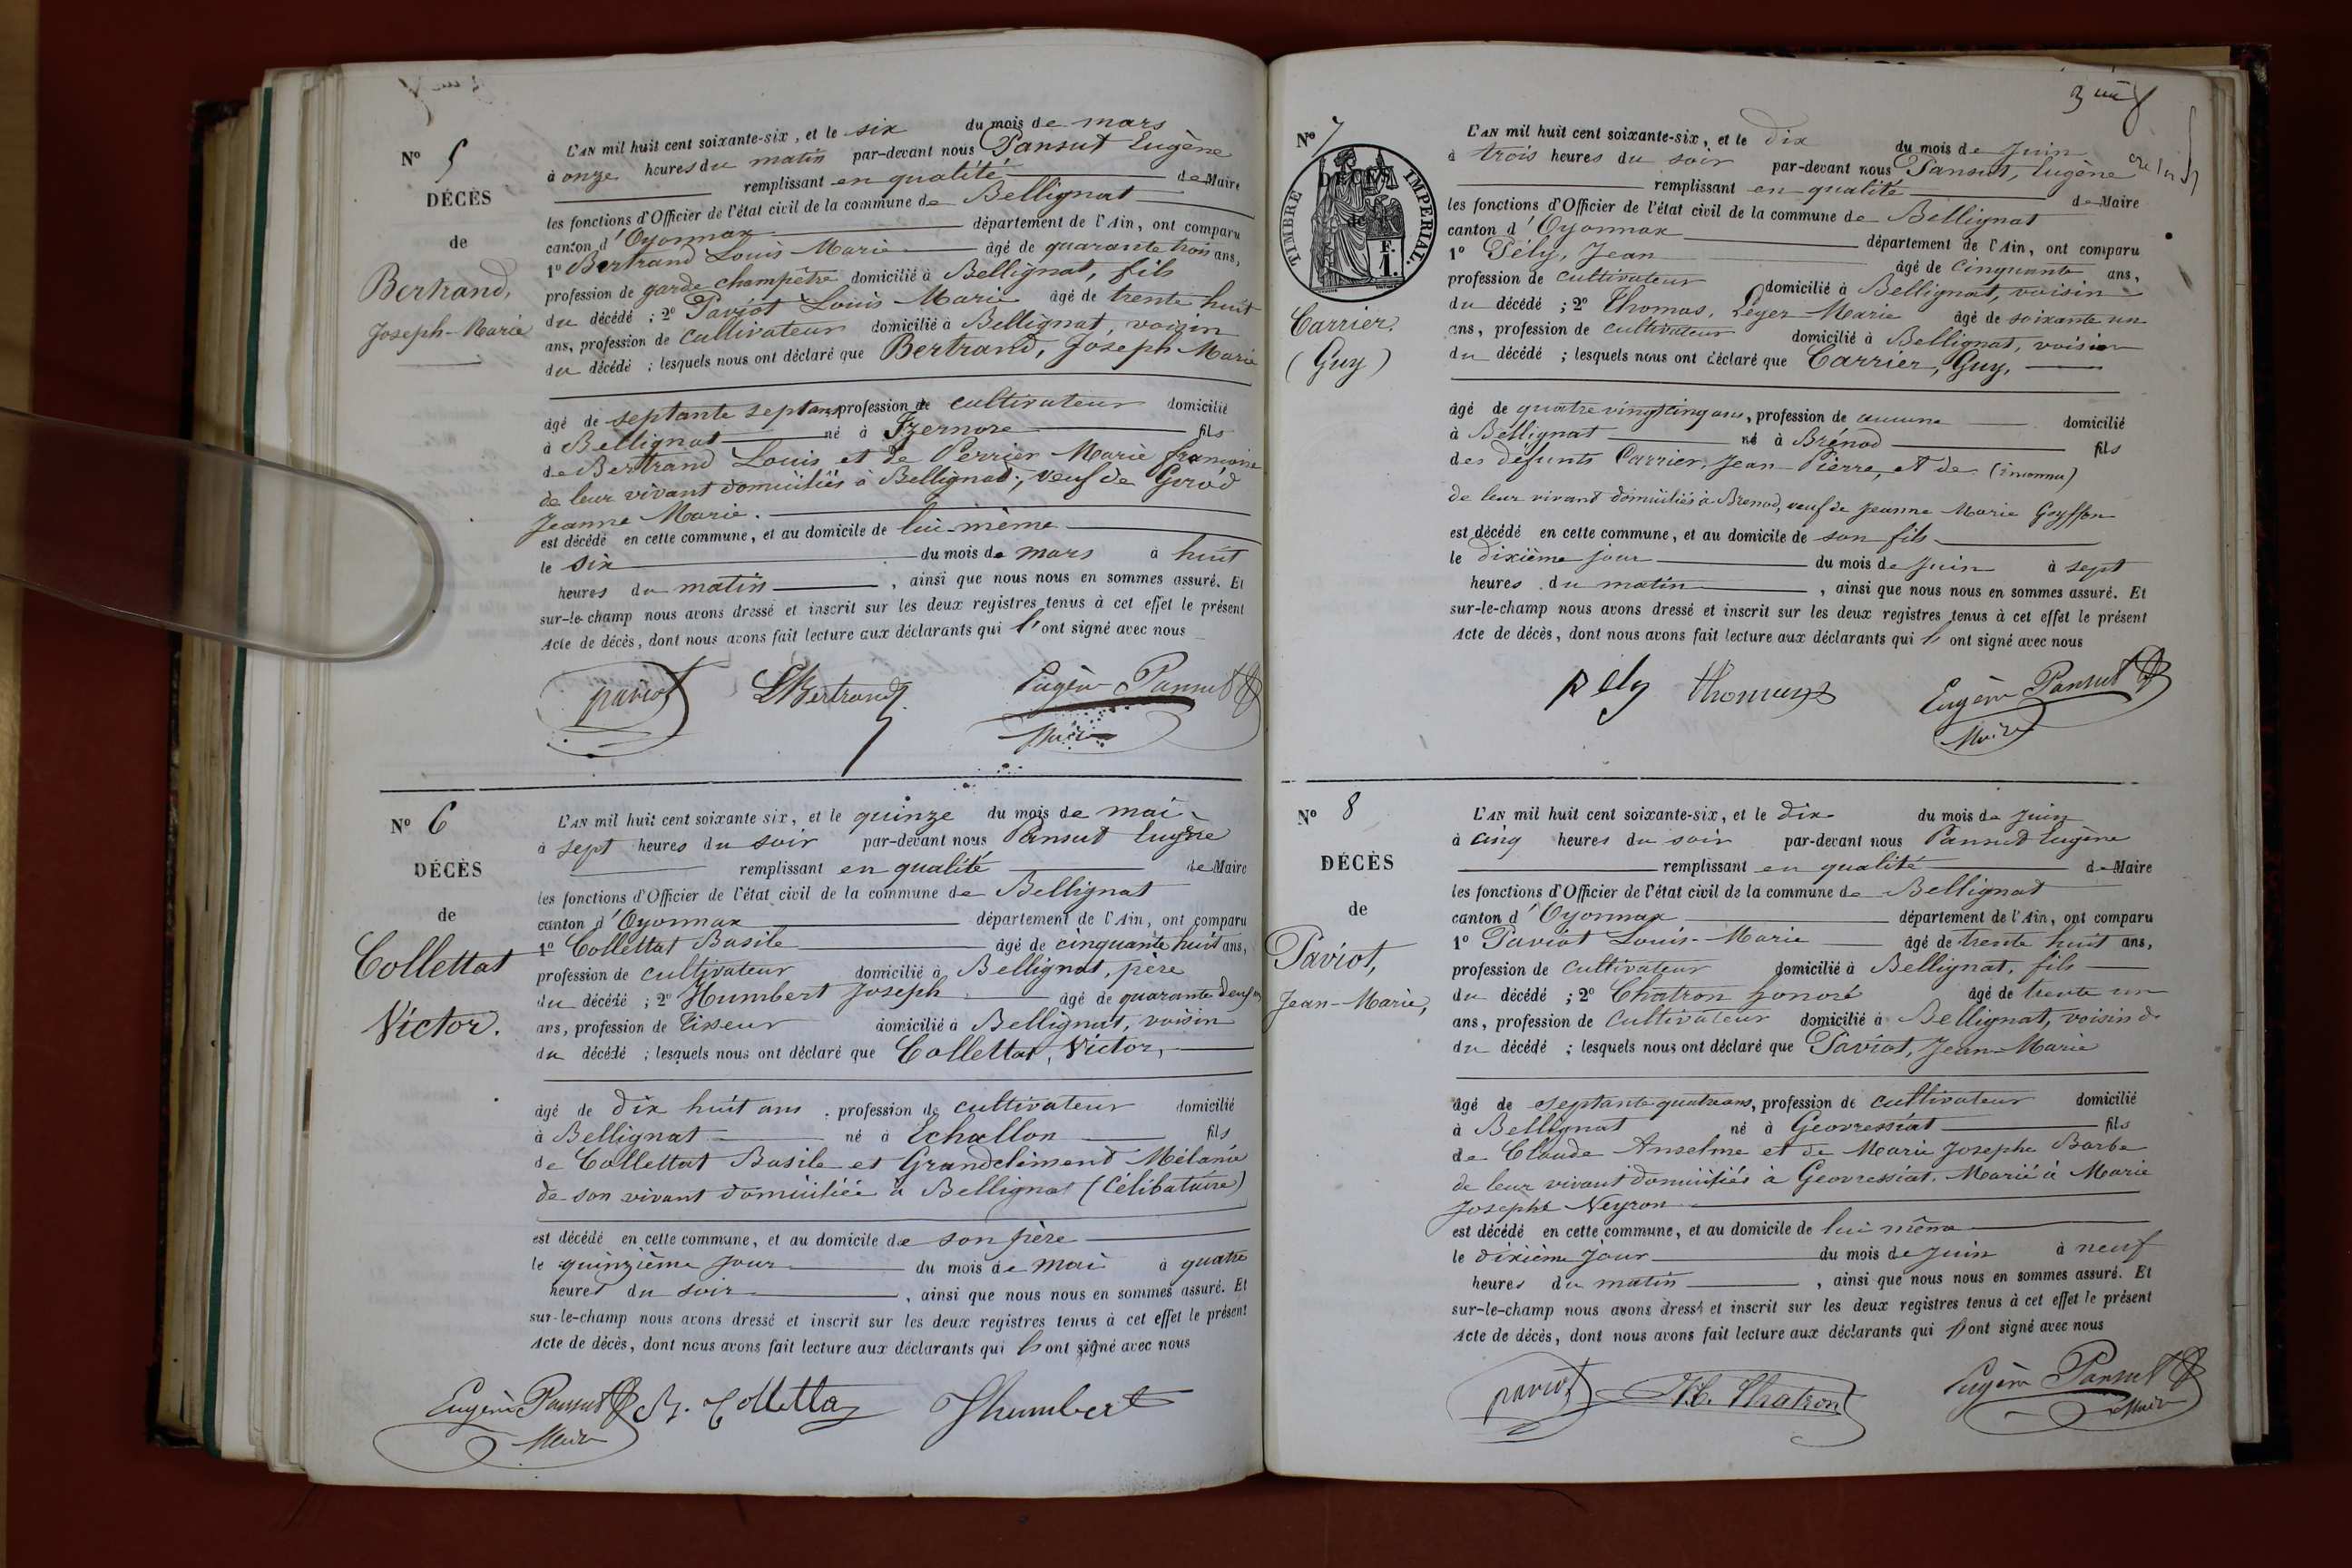 N° 5
DÉCÈS
de
Bertrand,
Joseph-Marie
L'AN mil huit cent soixante-six, et le six du mois de mars
à onze heures du matin par-devant nous Pansut Eugène
remplissant en qualité de Maire
les fonctions d'Officier de l'état civil de la commune de Bellignat
canton d'Oyonnax département de l'Ain, ont comparu
1° Bertrand Louis Marie âgé de quarante trois ans,
profession de garde champêtre domicilié à Bellignat, fils
du décédé ; 2° Paviot Louis Marie âgé de trente huit
ans, profession de cultivateur domicilié à Bellignat, voisin
du décédé ; lesquels nous ont déclaré que Bertrand, Joseph Marie
âgé de septante sept ans profession de cultivateur domicilié
à Bellignat né à Izernore fils
de Bertrand Louis et de Perrier Marie françoise
de leur vivant domiciliés à Bellignat ; veuf de Gerod
Jeanne Marie.
est décédé en cette commune, et au domicile de lui-même
le six du mois de mars à huit
heures du matin, ainsi que nous nous en sommes assuré. Et
sur-le-champ nous avons dressé et inscrit sur les deux registres tenus à cet effet le présent
Acte de décès, dont nous avons fait lecture aux déclarants qui l'ont signé avec nous
paviot LBertrand Eugène Pansut
Maire
N° 6
DÉCÈS
de
Collettat
Victor.
L'AN mil huit cent soixante six, et le quinze du mois de mai
à sept heures du soir par-devant nous Pansut Eugène
remplissant en qualité de Maire
les fonctions d'Officier de l'état civil de la commune de Bellignat
canton d'Oyonnax département de l'Ain, ont comparu
1° Collettat Basile âgé de cinquante huit ans,
profession de cultivateur domicilié à Bellignat, père
du décédé ; 2° Humbert Joseph âgé de quarante deux
ans, profession de tisseur domicilié à Bellignat, voisin
du décédé ; lesquels nous ont déclaré que Collettat, Victor,
âgé de dix huit ans, profession de cultivateur domicilié
à Bellignat né à Echallon fils
de Collettat Basile et Grandclément Mélanie
de son vivant domiciliée à Bellignat (Célibataire)
est décédé en cette commune, et au domicile de son père
le quinzième jour du mois de mai à quatre
heures du soir, ainsi que nous nous en sommes assuré. Et
sur-le-champ nous avons dressé et inscrit sur les deux registres tenus à cet effet le présent
Acte de décès, dont nous avons fait lecture aux déclarants qui l'ont signé avec nous
Eugène Pansut B. Collettaz Jhumbert
Maire
N° 7
TIMBRE IMPERIAL.
F.
1.
DÉCÈS
de
Carrier,
(Guy)
L'AN mil huit cent soixante-six, et le dix du mois de Juin
à trois heures du soir par-devant nous Pansut, Eugène
remplissant en qualité de Maire
les fonctions d'Officier de l'état civil de la commune de Bellignat
canton d'Oyonnax département de l'Ain, ont comparu
1° Pély, Jean âgé de cinquante ans,
profession de cultivateur domicilié à Bellignat, voisin
du décédé ; 2° Thomas, Léger-Marie âgé de soixante un
ans, profession de cultivateur domicilié à Bellignat, voisin
du décédé ; lesquels nous ont déclaré que Carrier, Guy,
âgé de quatre vingt cinq ans, profession de aucune domicilié
à Bellignat né à Brénod fils
des défunts Carrier, Jean-Pierre, et de (inconnu)
de leur vivant domiciliés à Brénod, veuf de Jeanne Marie Goyffon
est décédé en cette commune, et au domicile de son fils
le dixième jour du mois de Juin à sept
heures du matin, ainsi que nous nous en sommes assuré. Et
sur-le-champ nous avons dressé et inscrit sur les deux registres tenus à cet effet le présent
Acte de décès, dont nous avons fait lecture aux déclarants qui l'ont signé avec nous
pely thomas Eugène Pansut
Maire
N° 8
DÉCÈS
de
Paviot,
Jean-Marie,
L'AN mil huit cent soixante-six, et le dix du mois de Juin
à cinq heures du soir par-devant nous Pansut Eugène
remplissant en qualité de Maire
les fonctions d'Officier de l'état civil de la commune de Bellignat
canton d'Oyonnax département de l'Ain, ont comparu
1° Paviot Louis-Marie âgé de trente huit ans,
profession de cultivateur domicilié à Bellignat, fils
du décédé ; 2° Chatron honoré âgé de trente un
ans, profession de cultivateur domicilié à Bellignat, voisin d
du décédé ; lesquels nous ont déclaré que Paviot, Jean-Marie
âgé de septante quatre ans, profession de cultivateur domicilié
à Bellignat né à Géovressiat fils
de Claude Anselme et de Marie Josephe Barbe
de leur vivant domiciliés à Géovressiat. Marié à Marie
Josephe Neyron
est décédé en cette commune, et au domicile de lui même
le dixième jour du mois de Juin à neuf
heures du matin, ainsi que nous nous en sommes assuré. Et
sur-le-champ nous avons dressé et inscrit sur les deux registres tenus à cet effet le présent
Acte de décès, dont nous avons fait lecture aux déclarants qui l'ont signé avec nous
paviot Chatron Eugène Pansut
Maire